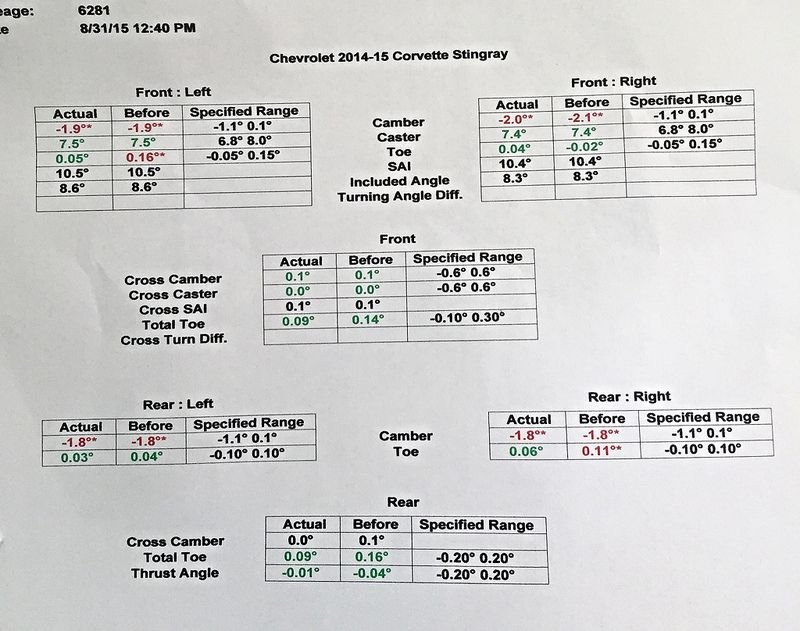 eage: 6281
e 8/31/15 12:40 PM
Chevrolet 2014-15 Corvette Stingray
Front : Left
Actual Before Specified Range
-1.9°* -1.9°* -1.1° 0.1°
7.5° 7.5° 6.8° 8.0°
0.05° 0.16°* -0.05° 0.15°
10.5° 10.5°
8.6° 8.6°
Camber
Caster
Toe
SAI
Included Angle
Turning Angle Diff.
Front : Right
Actual Before Specified Range
-2.0°* -2.1°* -1.1° 0.1°
7.4° 7.4° 6.8° 8.0°
0.04° -0.02° -0.05° 0.15°
10.4° 10.4°
8.3° 8.3°
Front
Actual Before Specified Range
Cross Camber 0.1° 0.1° -0.6° 0.6°
Cross Caster 0.0° 0.0° -0.6° 0.6°
Cross SAI 0.1° 0.1°
Total Toe 0.09° 0.14° -0.10° 0.30°
Cross Turn Diff.
Rear : Left
Actual Before Specified Range
-1.8°* -1.8°* -1.1° 0.1°
0.03° 0.04° -0.10° 0.10°
Camber
Toe
Rear : Right
Actual Before Specified Range
-1.8°* -1.8°* -1.1° 0.1°
0.06° 0.11°* -0.10° 0.10°
Rear
Actual Before Specified Range
Cross Camber 0.0° 0.1°
Total Toe 0.09° 0.16° -0.20° 0.20°
Thrust Angle -0.01° -0.04° -0.20° 0.20°